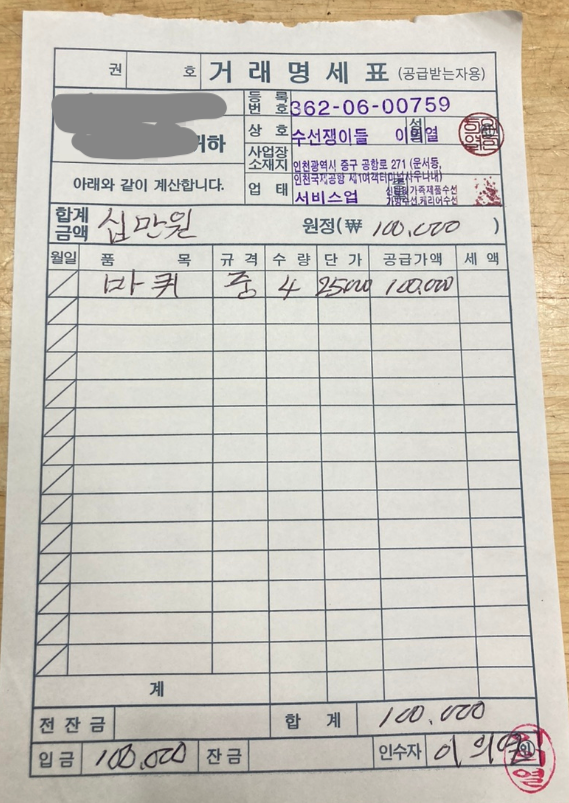 권 호 거래명세표 (공급받는자용)
귀하
아래와 같이 계산합니다.
등록번호 362-06-00759
상호 수선쟁이들 성명 이의열
사업장소재지 인천광역시 중구 공항로 271 (운서동,
인천국제공항 제1여객터미널사우나내)
업태 서비스업 종목
가방수선,캐리어수선
합계금액 십만원 원정(₩ 100,000 )
월일 품목 규격 수량 단가 공급가액 세액
바퀴 중 4 25000 100,000
계
전잔금 합계 100,000
입금 100,000 잔금 인수자 이의열 인